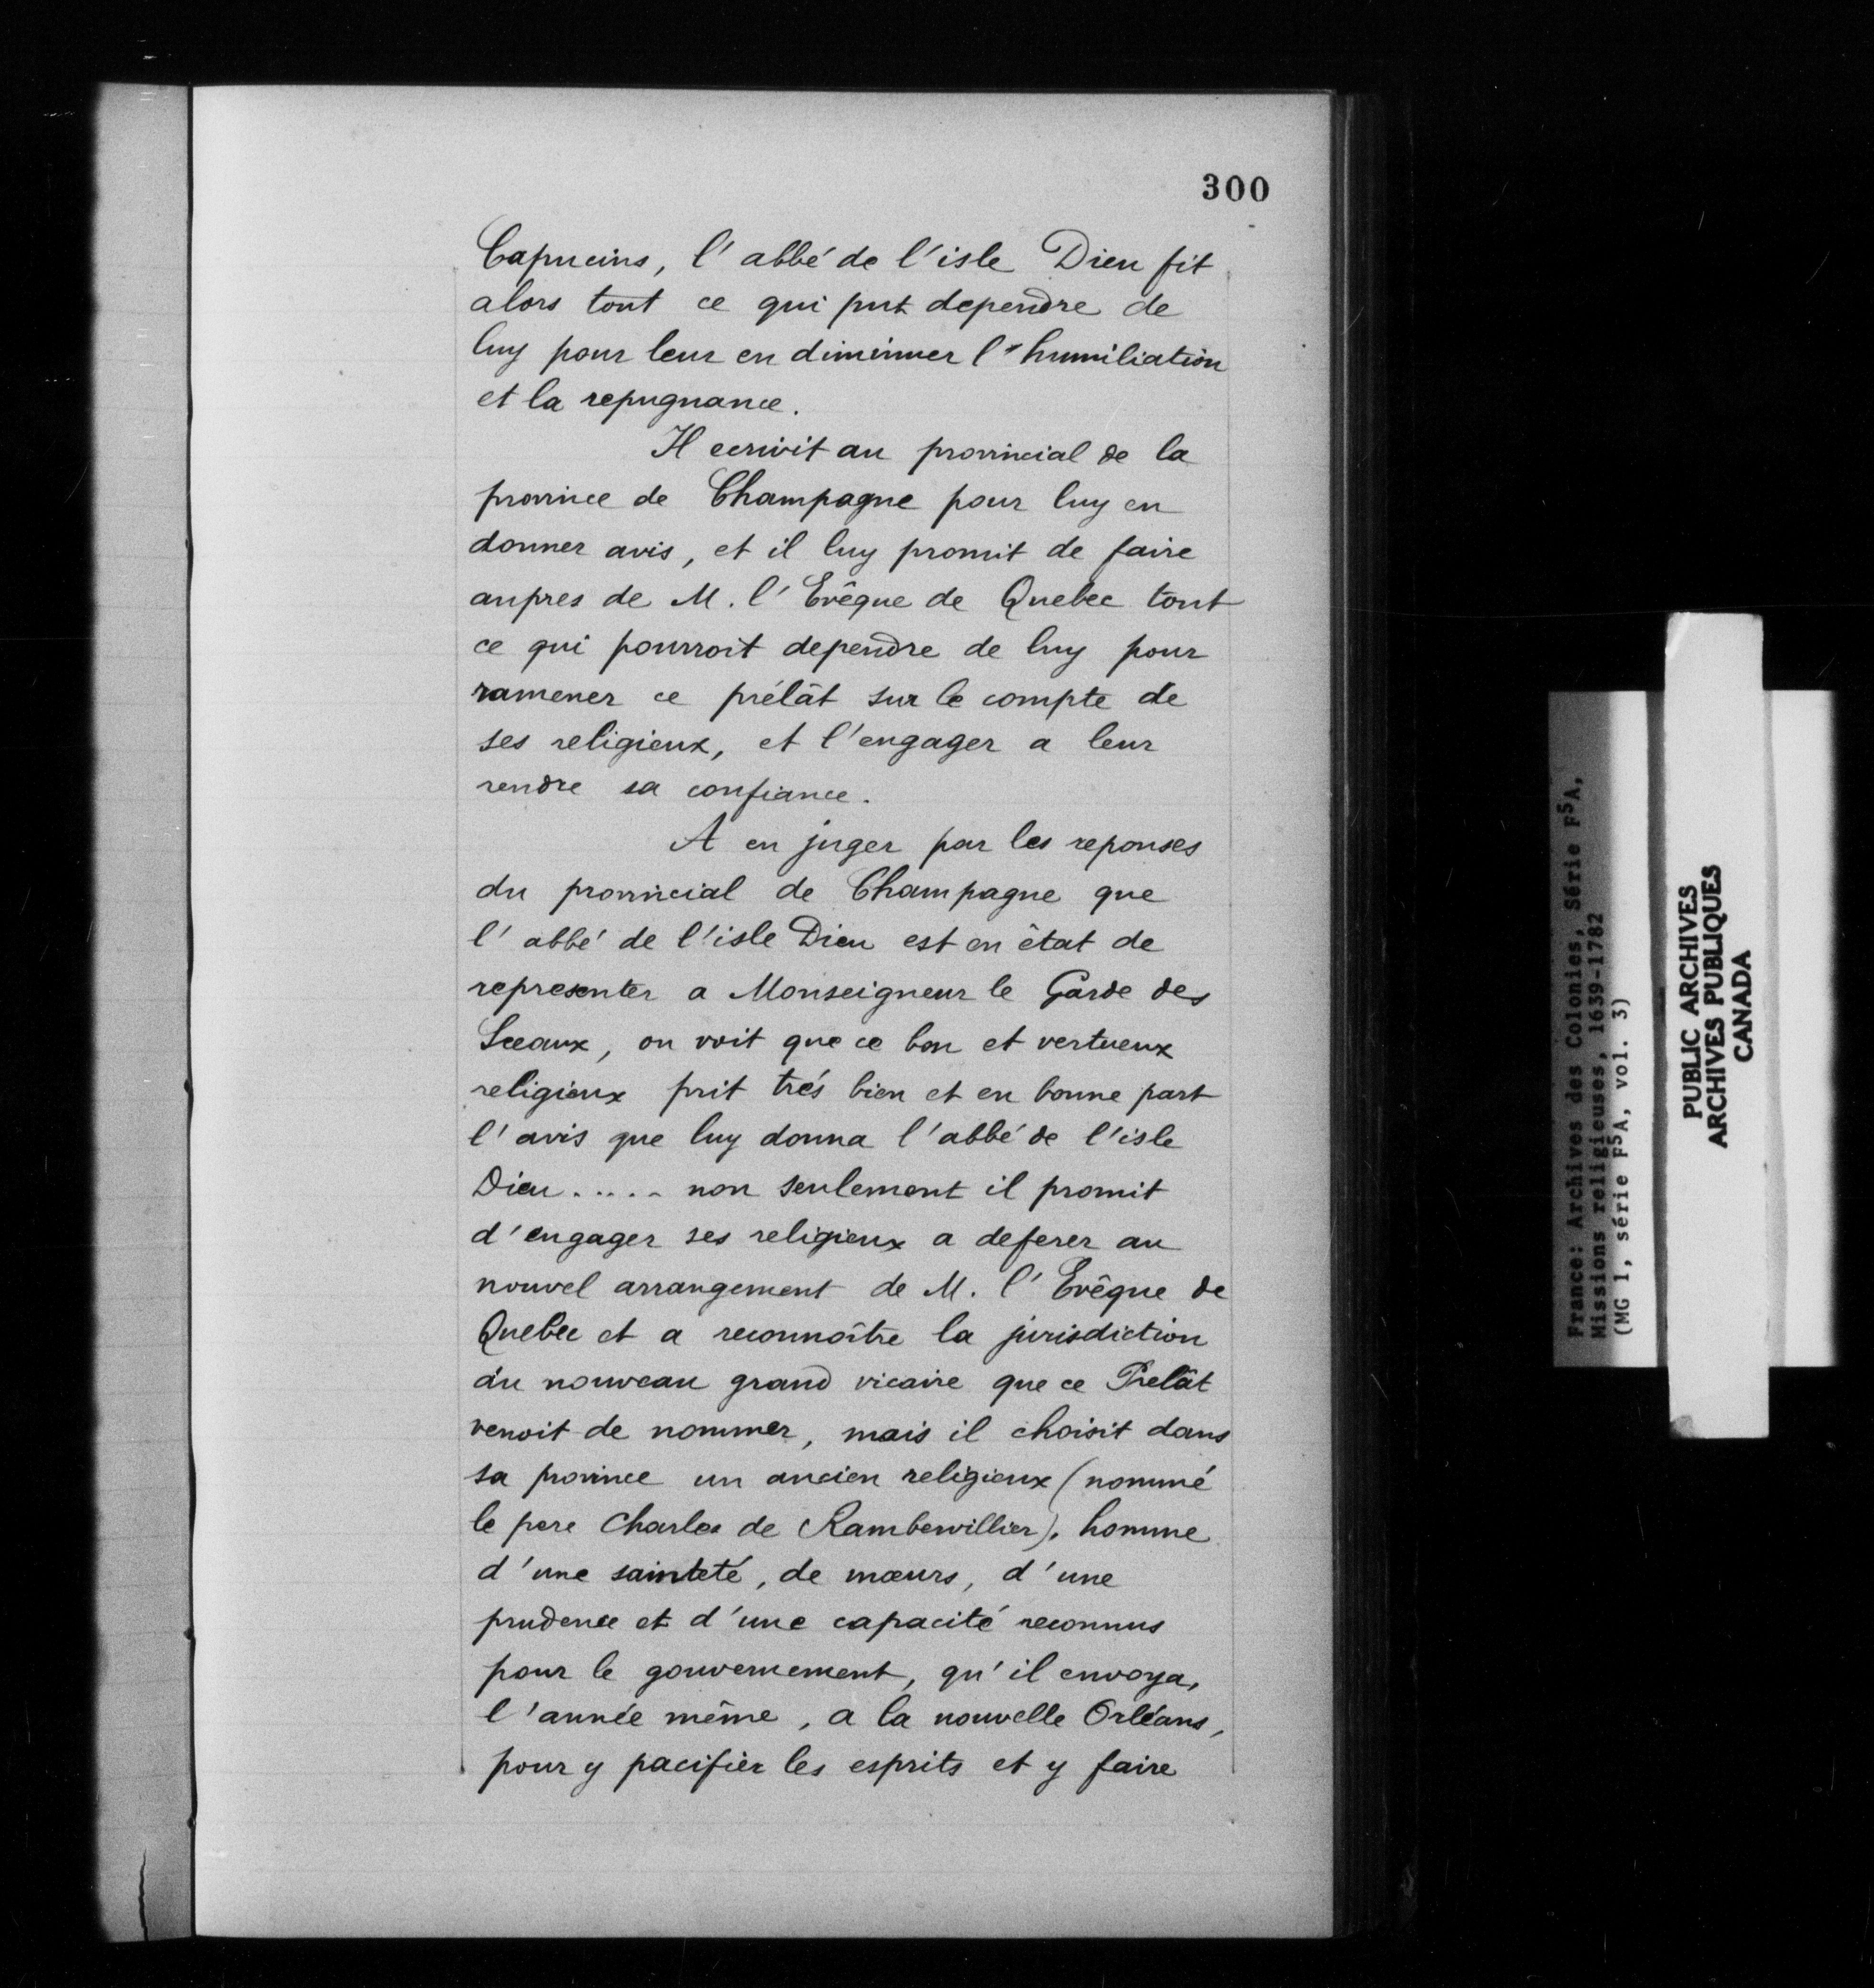 300
Capucins, l'abbé de l'isle Dieu fit
alors tout ce qui put dependre de
luy pour leur en diminuer l'humiliation
et la repugnance.
Il ecrivit au provincial de la
province de Champagne pour luy en
donner avis, et il luy promit de faire
aupres de M. l'Evêque de Quebec tout
ce qui pourroit dependre de luy pour
ramener ce prélât sur le compte de
ses religieux, et l'engager a leur
rendre sa confiance.
A en juger par les reponses
du provincial de Champagne que
l'abbé de l'isle Dieu est en êtat de
representer a Monseigneur le Garde des
Sceaux, on voit que ce bon et vertueux
religieux prit trés bien et en bonne part
l'avis que luy donna l'abbé de l'isle
Dieu..... non seulement il promit
d'engager ses religieux a deferer au
nouvel arrangement de M. l'Evêque de
Quebec et a reconnoître la jurisdiction
du nouveau grand vicaire que ce Prelât
venoit de nommer, mais il choisit dans
sa province un ancien religieux (nommé
le pere Charles de Rambervillier), homme
d'une sainteté, de mœurs, d'une
prudence et d'une capacité reconnus
pour le gouvernement, qu'il envoya,
l'année même, a la nouvelle Orléans,
pour y pacifier les esprits et y faire
France: Archives des Colonies, Série F5A,
Missions religieuses, 1639-1782
(MG 1, série F5A, vol. 3)
PUBLIC ARCHIVES
ARCHIVES PUBLIQUES
CANADA